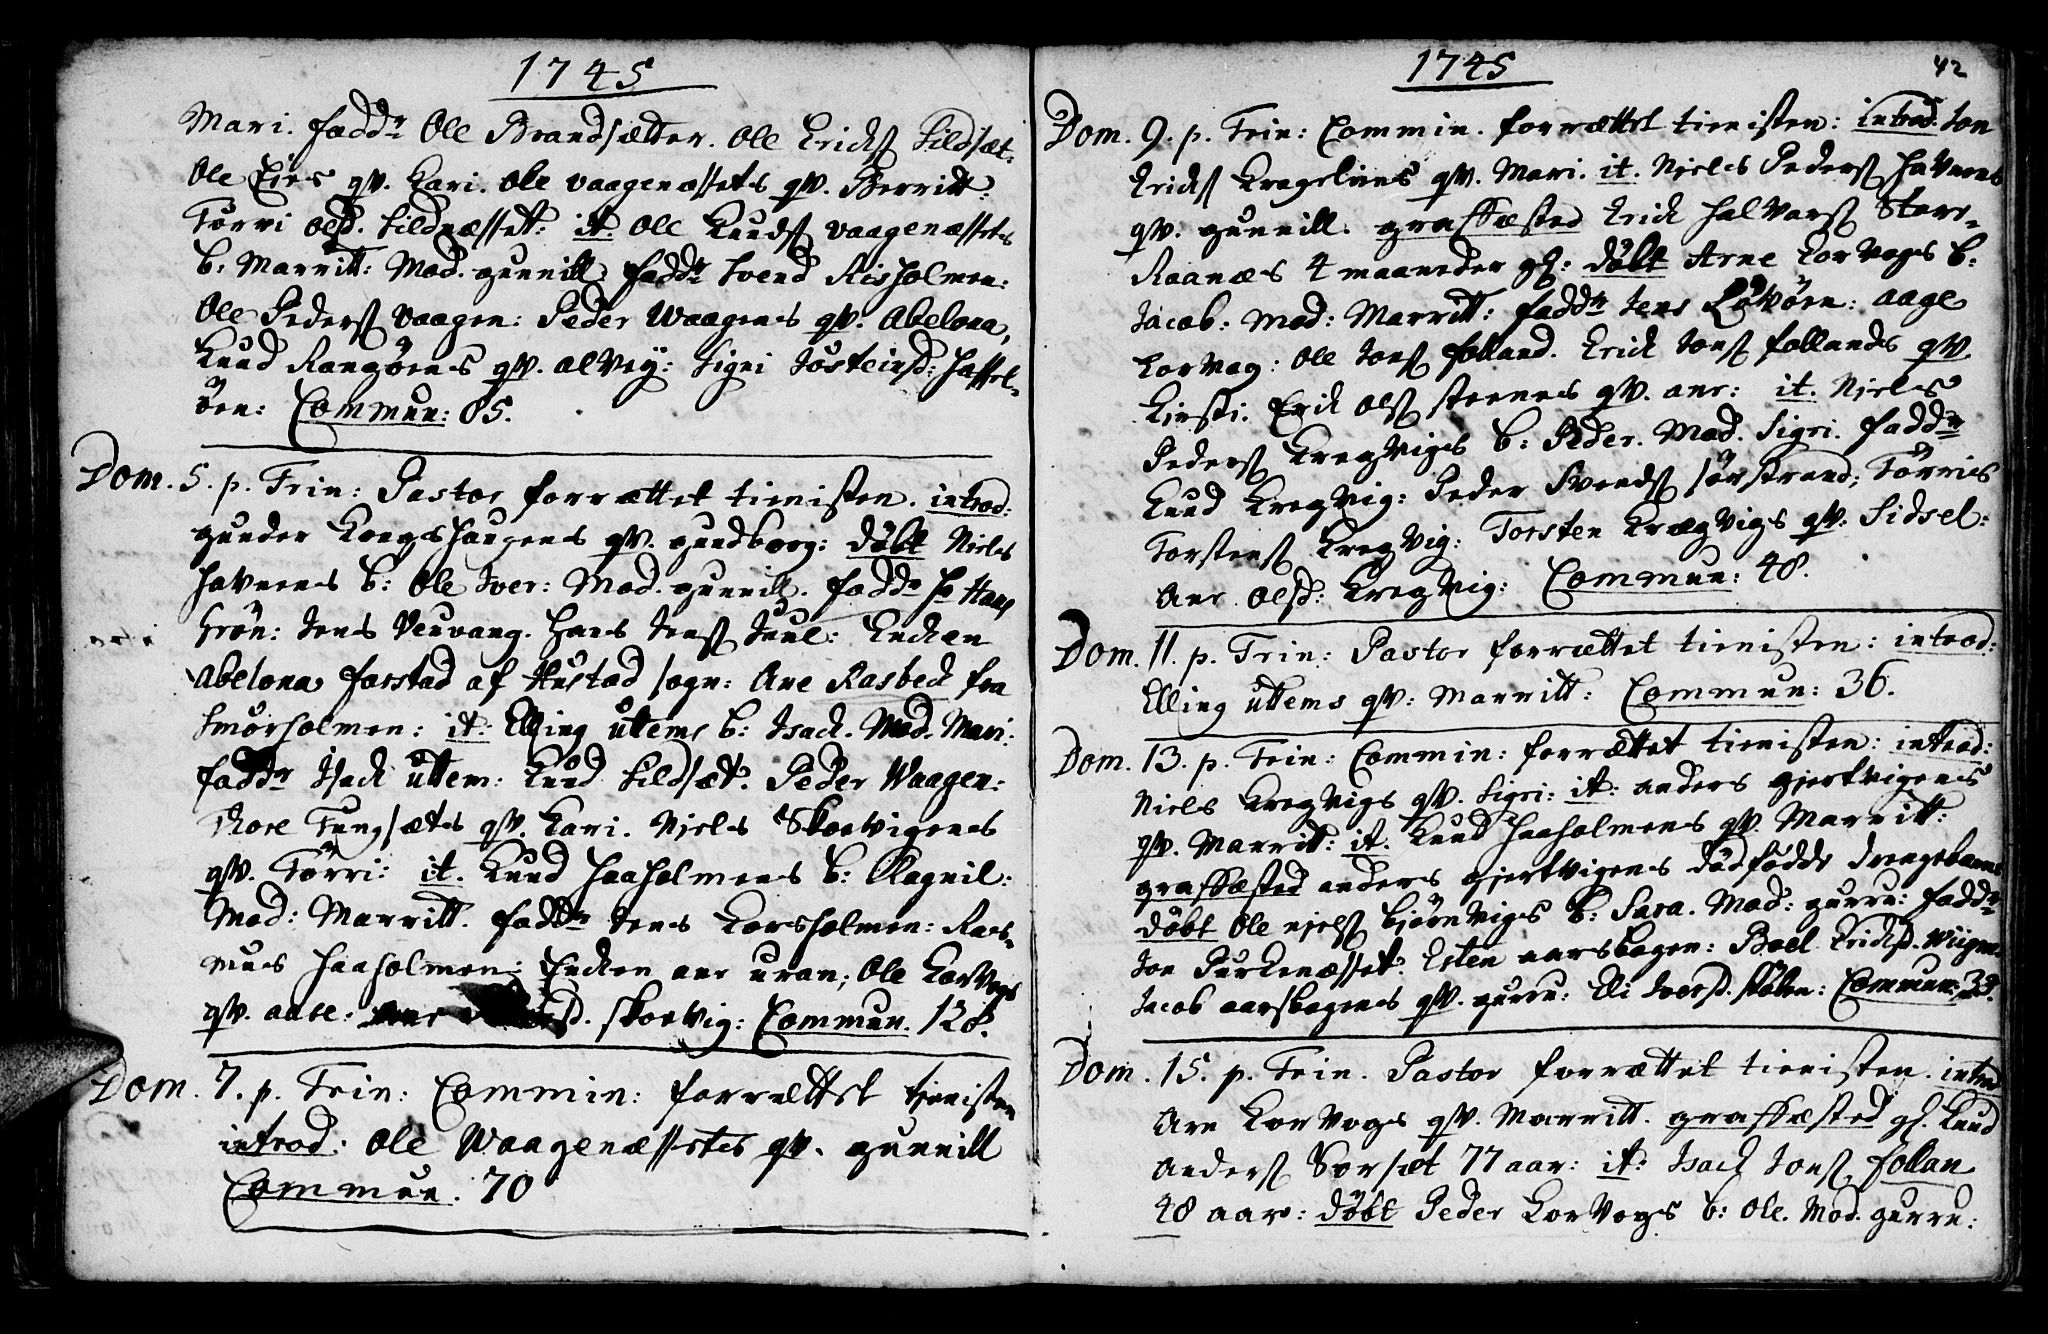 1745
Mari. fadd: Ole Brandsætter. Ole Erichs Sildsæt.
Ole Eies qv. Kari. Ole Vaagenæssets qv. Berritt:
Törri Olsd. Sildnæsset: it: Ole Knuds Vaagenæssets
b: Marritt: Mod. gunnill. fadd: Svend Risholmen:
Ole Peders vaagen: Peder Waagens qv. Abelona,
Knud Rangöens qv. alvey: Sigri Jösteinsd: Hassel-
öen: Commun: 85.
Dom. 5. p. Trin: Pastor forrættet tienisten. introd:
gunder Kongshaugens qv. gundborg: döbt Niels
Havnens b: Ole Iver: Mod. gunnill. fadd: Hr Hans
Grön: Jens Veuvang. Hans Jens Juul: Enchen
Abelona farstad af Hustad sogn: Ane Rasbech fra
Smörholmen: it: Elling Uttems b: Isach. Mod. Mari.
fadd: Isach Uttem: Knud Sildsæt. Peder Waagen:
Thore Tungsæts qv. Kari. Njels Skorvigens
qv. Törri: it. Knud Haaholmens b: Ragnil:
Mod: Marritt. fadd: Jens Korsholmen: Ras-
mus Haaholmen: Enchen ane uran; Ole Korvogs
qv. aase: ane sd. Skorvig: Commun. 128.
Dom. 7. p. Trin: Commin: forrættet tienisten
introd: Ole Waagenæssetes qv. gunnill
Commun. 70
1745 42
Dom. 9. p. Trin: Commin. forrættet tienisten: introd. Jon
Erichs Kragelunns qv. Mari. it. Njels Peders Havnens
qv. gunnill. graffæsted Erich Halvors Store-
Raanæs 4 maaneder gl: döbt Arne Korvogs b:
Jacob: Mod: Marritt: fadd: Jens Lövöen: aage
Korvog: Ole Jons folland. Erich Jons follands qv.
Kirsti. Erich Ols steenes qv. ane: it. Njels
Peders Kregvigs b: Peder. Mod. Sigri. fadd:
Knud Kregvig: Peder Svends Sörstrand; Törris
Torstens Kregvig: Torsten Krægvigs qv. Sidsel:
Ane Olsd: Kregvig: Commun: 48.
Dom. 11. p. Trin: Pastor forrættet tienisten: introd:
Elling Uttems qv: Marritt: Commun: 36.
Dom. 13. p. Trin: Commin: forrættet tienisten: introd:
Niels Kregvigs qv. Sigri: it: anders gjertvigens
qv. Marritt: it. Knud Haaholmens qv. Marritt:
graffæsted anders gjertvigens dödfödde drengebarn
döbt Ole njels Björnvigs b: Sara. Mod: gurru: fadd:
Jon Purkenæsset: Esten aarsbogen: Boel Erichsd. Wiigen.
Jacob aarsbogens qv. gurru: Eli Iversd. stölen: Commun: 33.
Dom. 15. p. Trin. Pastor forrættet tienisten. introd
Arn Korvogs qv. Marritt. graffæsted gl. Knud
Anders Sorsæt 77 aar: it: Isach Jons follan
48 aar: döbt Peder Korvogs b: Ole. Mod. gurru: